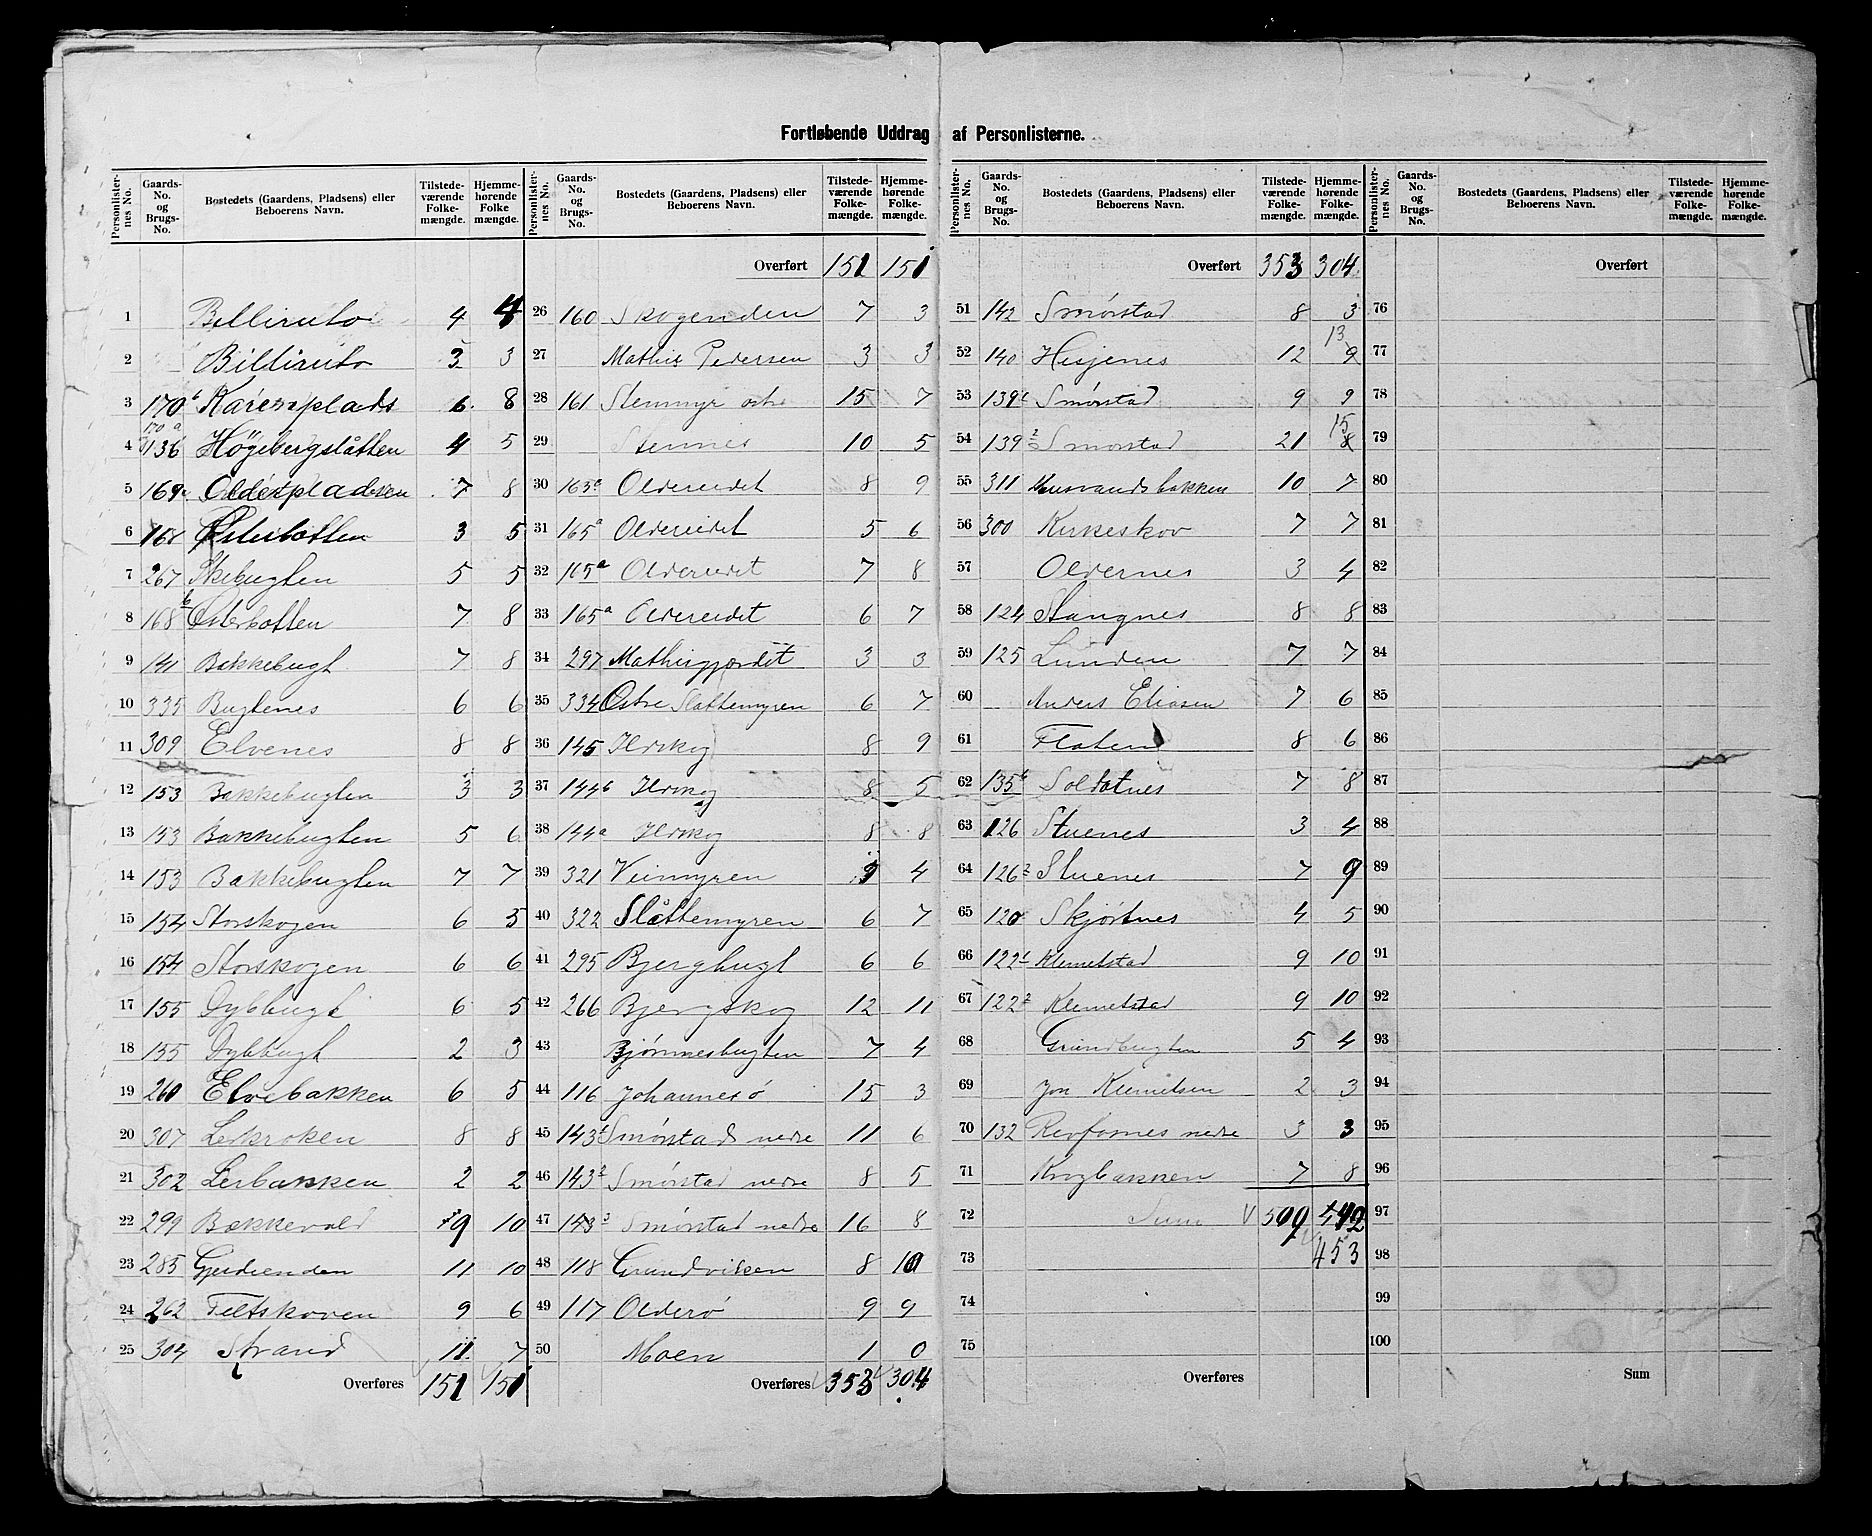 Fortløbende Uddrag af Personlisterne.
Personlister-nes No. Gaards-No. og Brugs-No. Bostedets (Gaardens, Pladsens) eller Beboerens Navn. Tilstede-værende Folke-mængde. Hjemme-hørende Folke-mængde.
1 4 4
2 3 3
3 170 b Karenplads 6 8
4 170 a 136 Högebergslåtten 4 5
5 169 7 8
6 168 Østerbotten 3 5
7 267 Skebugten 5 5
8 168 b Østerbotten 7 8
9 141 Bakkebugt 7 8
10 335 Bugtenes 6 6
11 309 Elvenes 8 8
12 153 Bakkebugten 3 3
13 153 Bakkebugten 5 6
14 153 Bakkebugten 7 7
15 154 Storskogen 6 5
16 154 Storskogen 6 6
17 155 Dybbugt 6 5
18 155 Dybbugt 2 3
19 260 Elvebakken 6 5
20 307 Lerkroken 8 8
21 302 Lerbakken 2 2
22 299 Bakkevold 9 10
23 285 11 10
24 262 9 6
25 304 Strand 11 7
Overføres 151 151
Personlister-nes No. Gaards-No. og Brugs-No. Bostedets (Gaardens, Pladsens) eller Beboerens Navn. Tilstede-værende Folke-mængde. Hjemme-hørende Folke-mængde.
Overført 151 151
26 160 Skogenden 7 3
27 Mathis Pedersen 3 3
28 161 Stenmyr 15 7
29 Stennes 10 5
30 163 a Oldereidet 8 9
31 165 a Oldereidet 5 6
32 165 a Oldereidet 7 8
33 165 a Oldereidet 6 7
34 297 Mathisgjordet 3 3
35 334 Østre Slattemyren 6 7
36 145 Ilskog 8 9
37 144 b Ilskog 8 5
38 144 a Ilskog 8 8
39 321 Veimyren 4
40 322 Slåttemyren 6 7
41 295 Bjergbugt 6 6
42 266 Bjergskog 12 11
43 Bjørnnesbugten 7 4
44 116 Johannesø 15 3
45 143 1 Smørstad nedre 11 6
46 143 2 Smørstad nedre 8 5
47 143 3 Smørstad nedre 16 8
48 118 Grundviken 8 10
49 117 Olderø 9 9
50 Moen 1 0
Overføres 353 304
Personlister-nes No. Gaards-No. og Brugs-No. Bostedets (Gaardens, Pladsens) eller Beboerens Navn. Tilstede-værende Folke-mængde. Hjemme-hørende Folke-mængde.
Overført 353 304
51 142 Smørstad 8 3
52 140 Hesjenes 12 13 9
53 139 1 Smørstad 9 9
54 139 2 Smørstad 21 15 8
55 311 10 7
56 300 Kirkeskov 7 7
57 Oldernes 3 4
58 124 Stangnes 8 8
59 125 Lunden 7 7
60 Anders Eliasen 7 6
61 Flaten 8 6
62 135 b Soldatnes 7 8
63 126 Stuenes 3 4
64 126 2 Stuenes 7 9
65 120 Skjørtnes 4 5
66 122 1 Klemetstad 9 10
67 122 2 Klemetstad 9 10
68 Grundbugten 5 4
69 Jon Klemetsen 2 3
70 132 Revfosnes nedre 3 3
71 Krogbakken 7 8
72 Sum 509 442
73 453
74
75
Overføres
Personlister-nes No. Gaards-No. og Brugs-No. Bostedets (Gaardens, Pladsens) eller Beboerens Navn. Tilstede-værende Folke-mængde. Hjemme-hørende Folke-mængde.
Overført
76
77
78
79
80
81
82
83
84
85
86
87
88
89
90
91
92
93
94
95
96
97
98
99
100
Sum